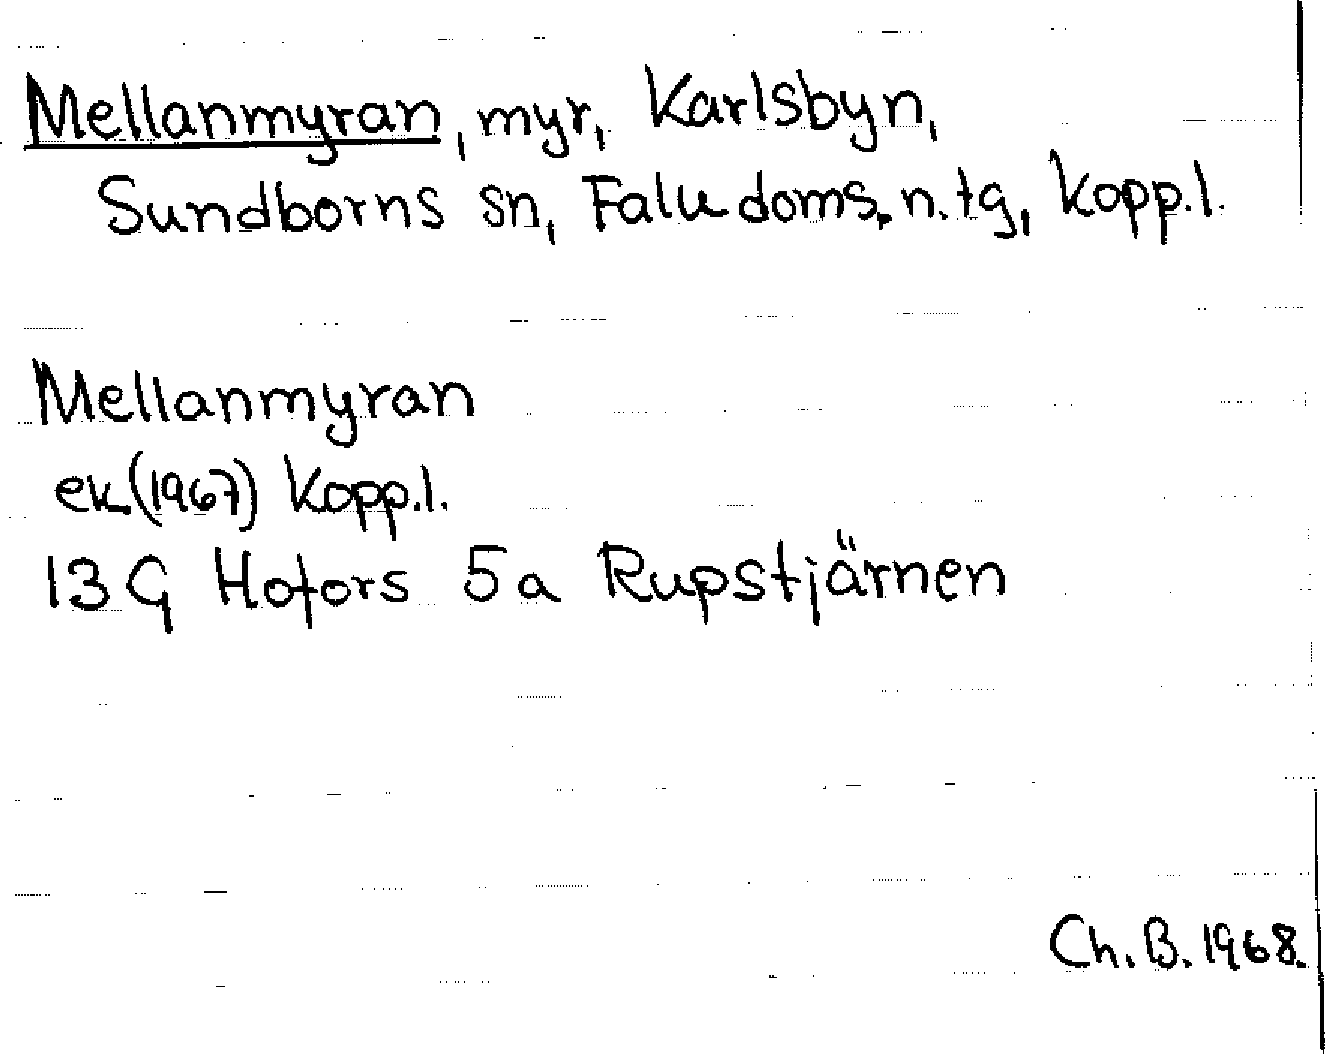 Mellanmyran, myr, Karlsbyn,
Sundborns sn, Falu doms. n. tg, Kopp.l.
Mellanmyran
ek (1967) Kopp.l.
13 G Hofors 5a Rupstjärnen
Ch. B. 1968.